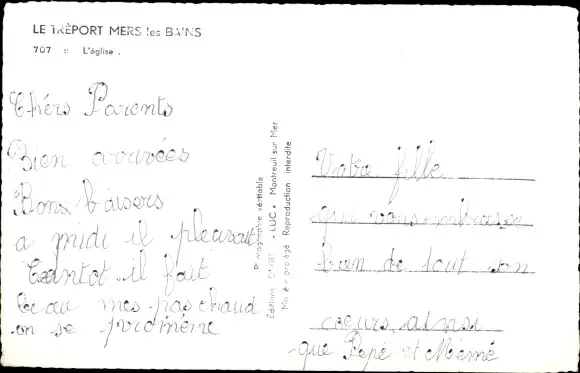 LE TRÉPORT MERS les BAINS
707 :: L'église .
Chers Parents
Bien arrivées
Bons baisers
a midi il pleuvait
tantot il fait
beau mes pas chaud
on se promène
Photographie véritable
Editions d'ART « LUC » Montreuil sur Mer
Modèle protégé Reproduction interdite
Votre fille
que vous embrasse
bien de tout son
coeurs ainsi
que Pépé et Mémé